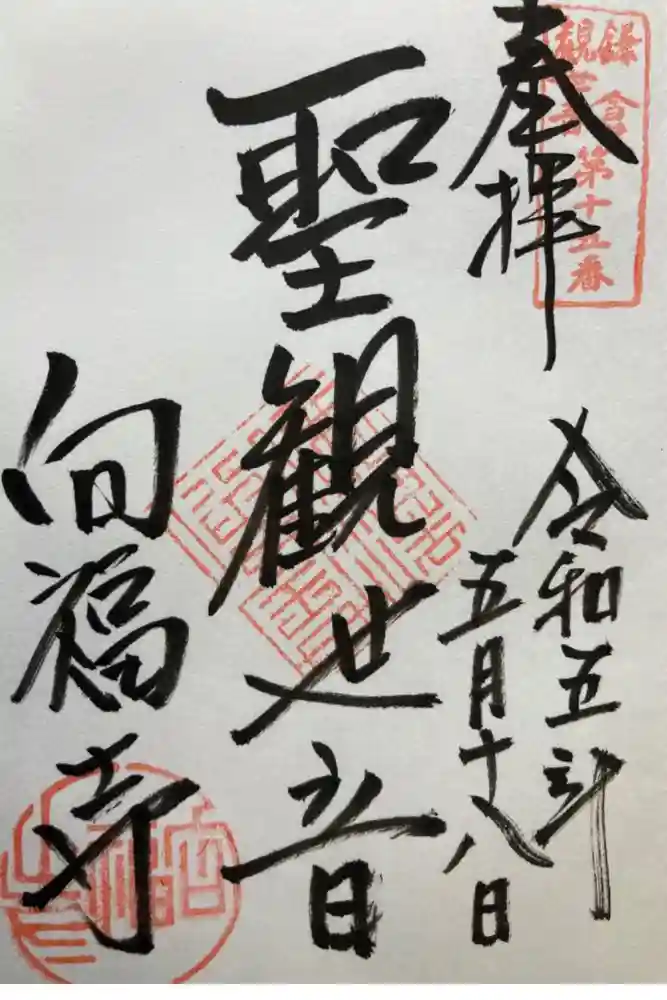 鎌倉
観世音第十五番
奉拝
令和五年
五月十八日
聖観世音
向福寺